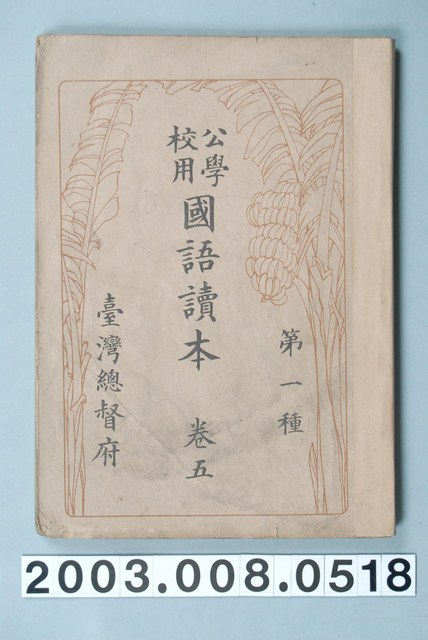 第一種
公學校用
國語讀本 卷五
臺灣總督府
2003.008.0518